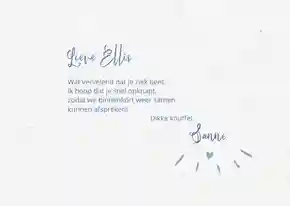 Lieve Ellis
Wat vervelend dat je ziek bent.
Ik hoop dat je snel opknapt,
zodat we binnenkort weer samen
kunnen afspreken!
Dikke knuffel,
Sanne